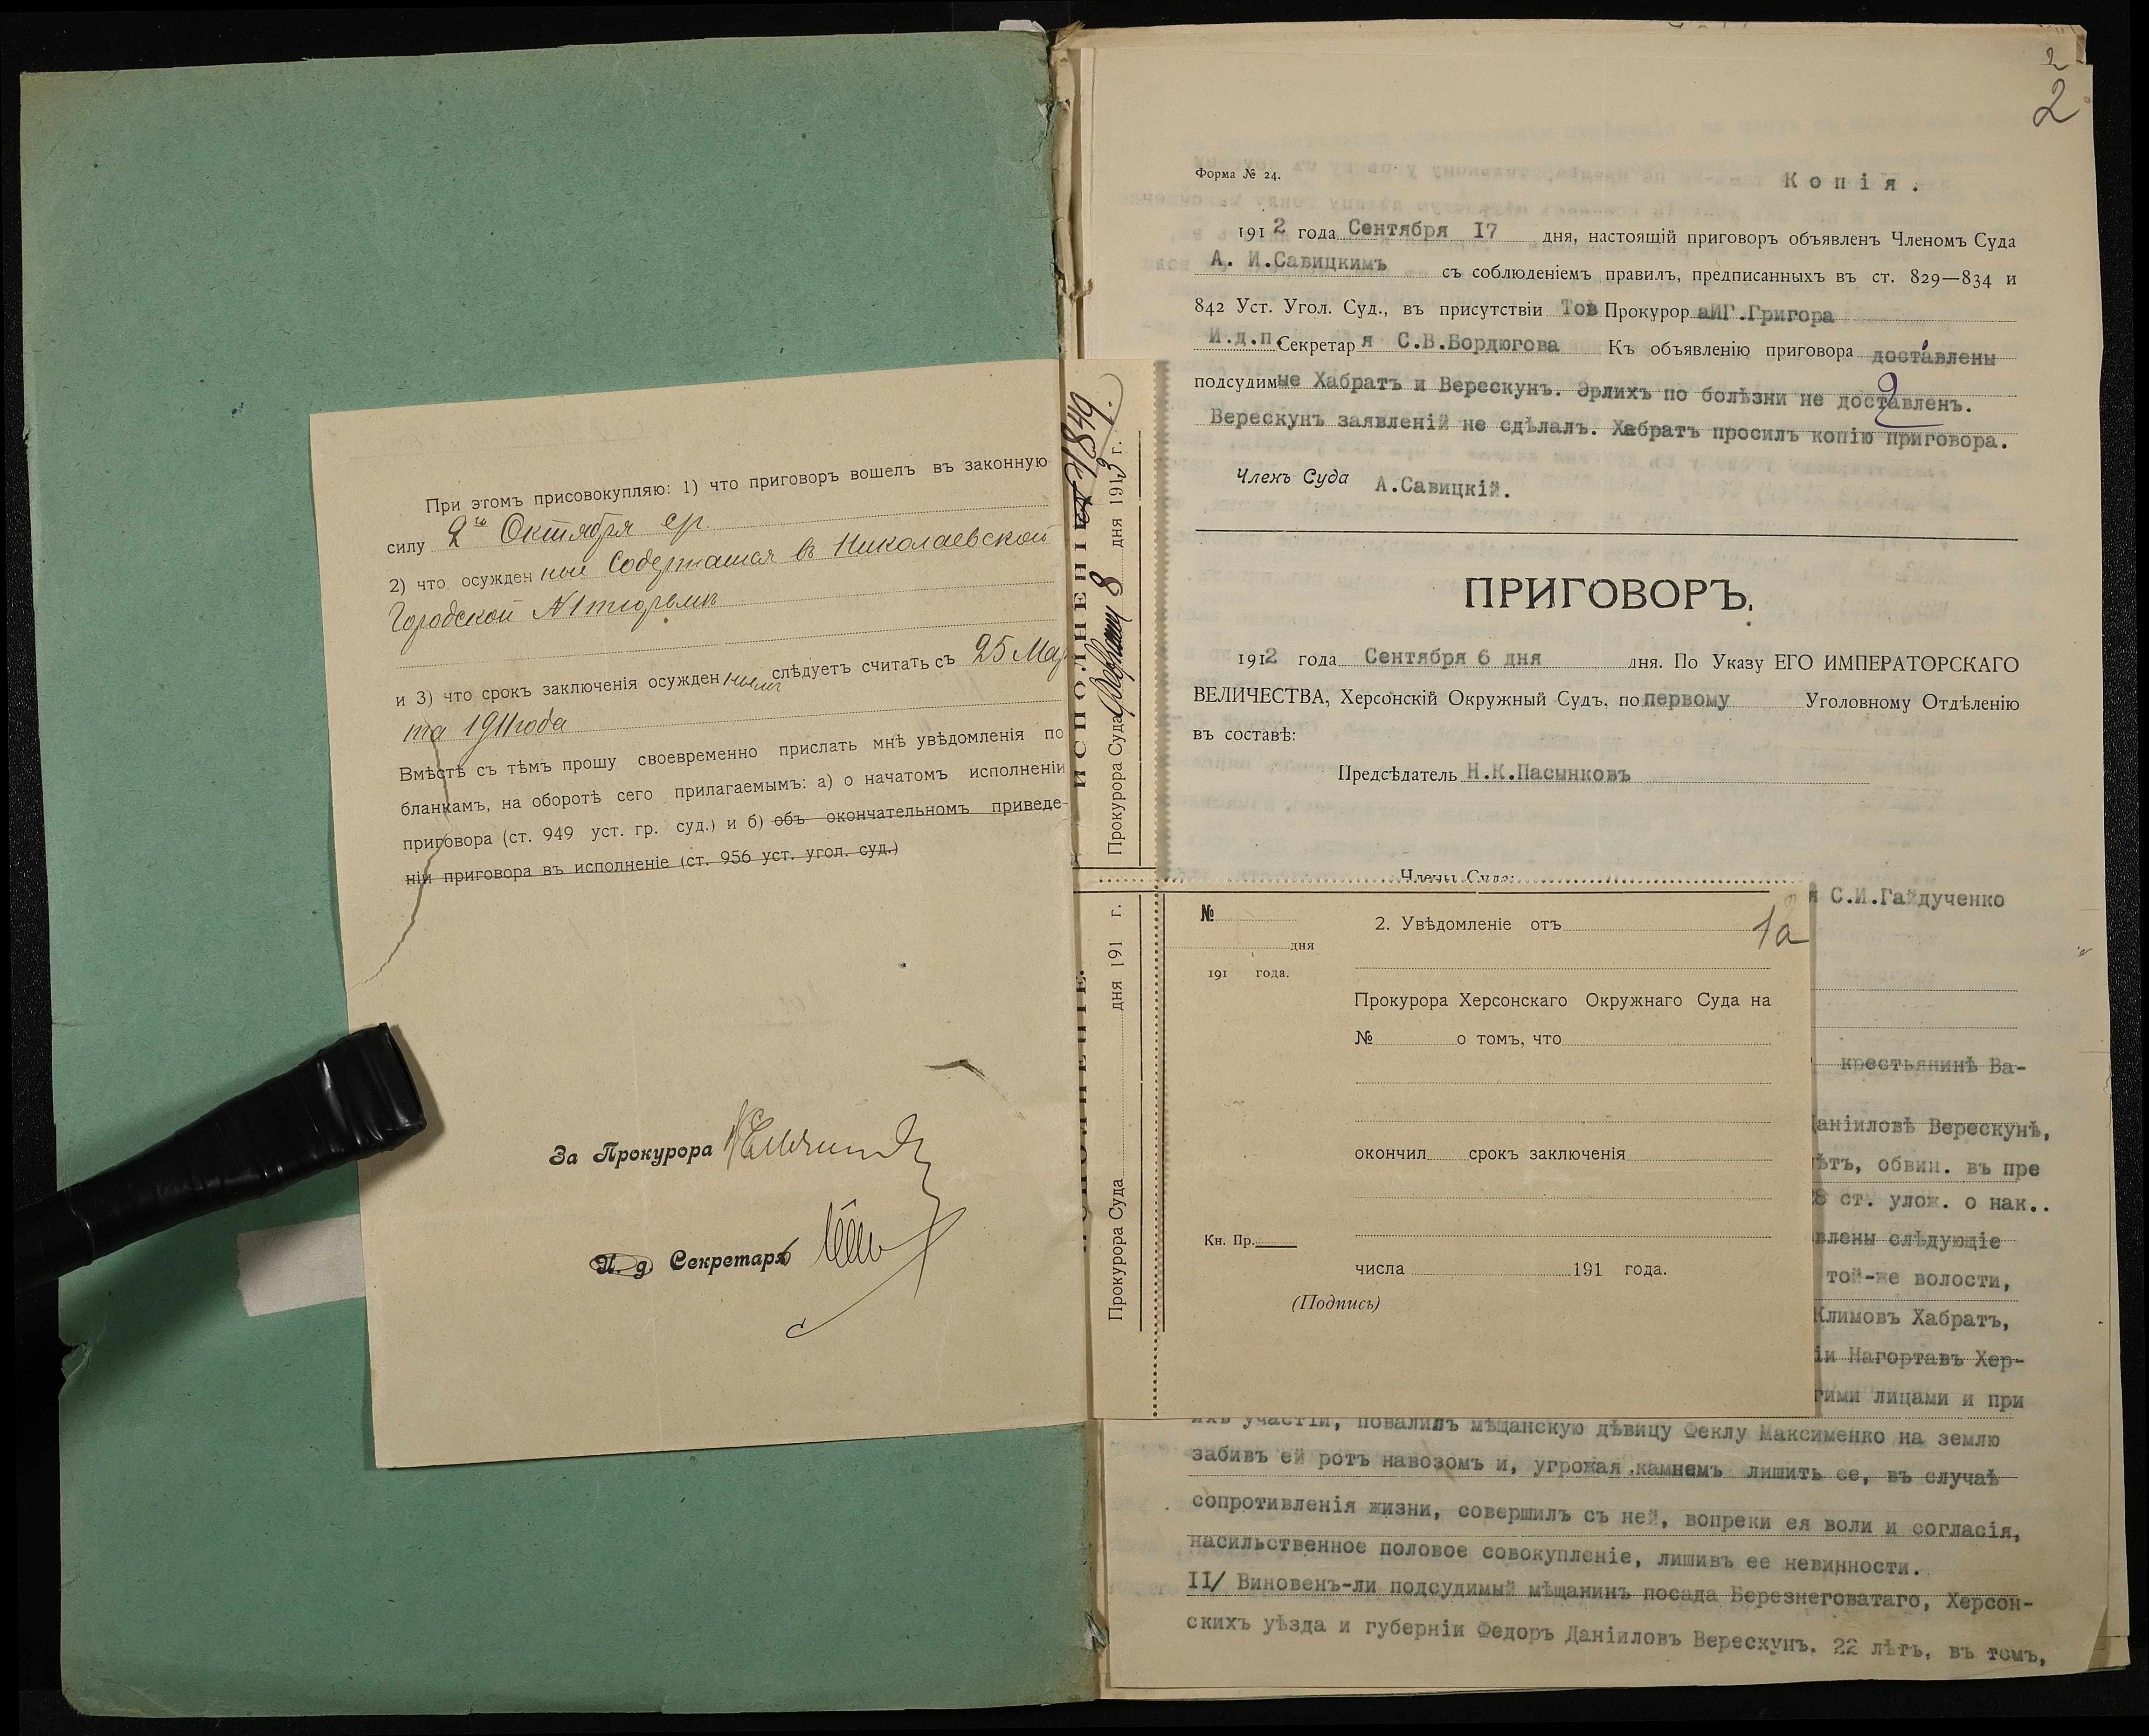 При этомъ присовокупляю: 1) что приговоръ вошелъ въ законную
силу 2го Октября с/г
2) что осужденные содержатся въ Николаевской
Городской №1 тюрьмѣ
и 3) что срокъ заключенія осужденнымъ слѣдуетъ считать съ 25 Мар
та 1911 года
Вмѣстѣ съ тѣмъ прошу своевременно прислать мнѣ увѣдомленія по
бланкамъ, на оборотѣ сего прилагаемымъ: а) о начатомъ исполненіи
приговора (ст. 949 уст. гр. суд.) и б) объ окончательномъ приведе-
ніи приговора въ исполненіе (ст. 956 уст. угол. суд.)
За Прокурора
И. д. Секретаря
Прокурора Суда 8 дня 1913 г.
Прокурора Суда дня 191 г.
2
2
Форма № 24.
Копія.
1912 года Сентября 17 дня, настоящій приговоръ объявленъ Членомъ Суда
А. И.Савицкимъ съ соблюденіемъ правилъ, предписанныхъ въ ст. 829—834 и
842 Уст. Угол. Суд., въ присутствіи Тов Прокурора ИГ.Григора
И.д.п.Секретаря С.В.Бордюгова Къ объявленію приговора доставлены
подсудимые Хабратъ и Верескунъ. Эрлихъ по болѣзни не доставленъ.
Верескунъ заявленій не сдѣлалъ. Хабратъ просилъ копію приговора.
2
Членъ Суда А.Савицкій.
ПРИГОВОРЪ.
1912 года Сентября 6 дня дня. По Указу ЕГО ИМПЕРАТОРСКАГО
ВЕЛИЧЕСТВА, Херсонскій Окружный Судъ, по первому Уголовному Отдѣленію
въ составѣ:
Предсѣдатель Н.К.Пасынковъ
Члены Суда:
С.И.Гайдученко
№
дня
191 года.
2. Увѣдомленіе отъ
1а
Прокурора Херсонскаго Окружнаго Суда на
№ о томъ, что
окончил срокъ заключенія
Кн. Пр.
числа 191 года.
(Подпись)
крестьянинѣ Ва-
Даніиловѣ Верескунѣ,
ѣтъ, обвин. въ пре
ст. улож. о нак..
влены слѣдующіе
той-же волости,
Климовъ Хабратъ,
іи Нагортавъ Хер-
гими лицами и при
ихъ участіи, повалилъ мѣщанскую дѣвицу Феклу Максименко на землю
забивъ ей ротъ навозомъ и, угрожая камнемъ лишить ее, въ случаѣ
сопротивленія жизни, совершилъ съ ней, вопреки ея воли и согласія,
насильственное половое совокупленіе, лишивъ ее невинности.
II/ Виновенъ-ли подсудимый мѣщанинъ посада Березнеговатаго, Херсон-
скихъ уѣзда и губерніи Федоръ Даніиловъ Верескунъ. 22 лѣтъ, въ томъ,